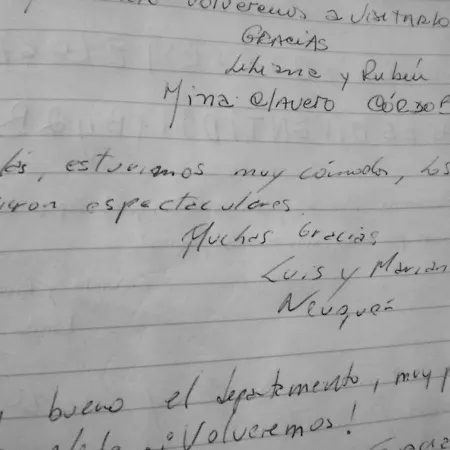 volveremos a visitarlo
GRACIAS
Liliana y Rubén
Mina Clavero CÓRDO
estuvimos muy cómodos, los
espectaculares.
Muchas Gracias
Luis y Marian
Neuquén
bueno el departamento, muy
¡Volveremos!